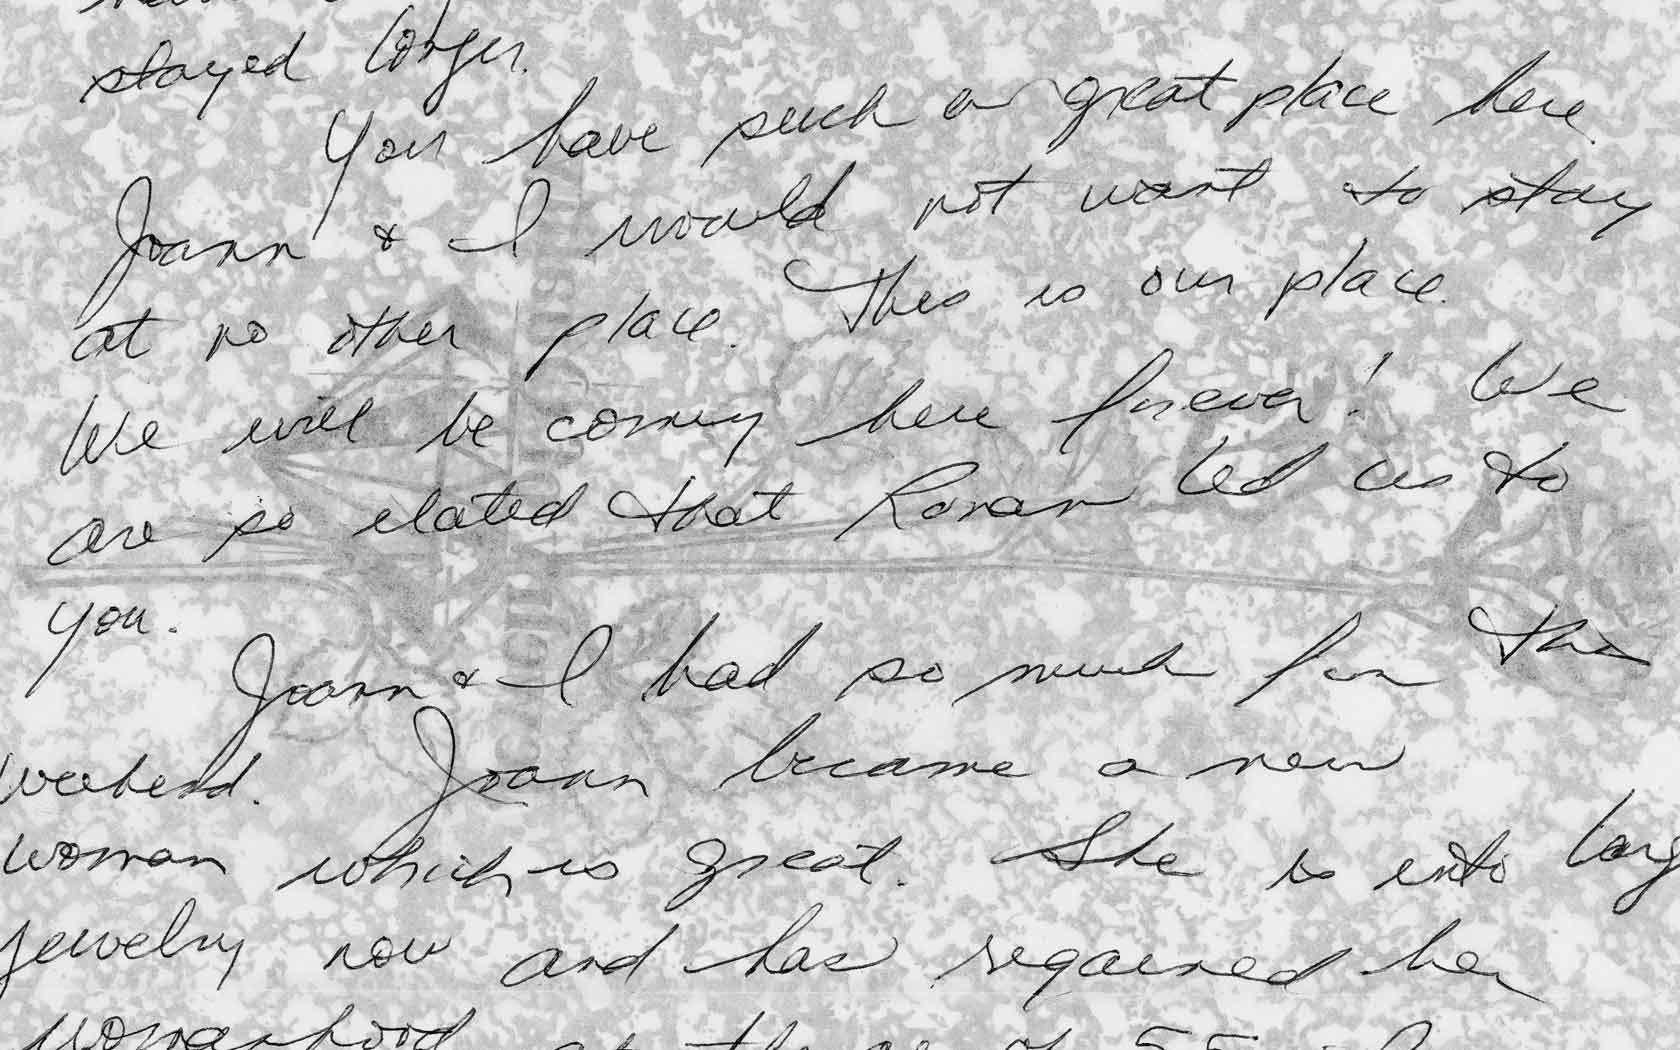 stayed longer.
You have such a great place here.
Joann & I would not want to stay
at no other place. This is our place.
We will be coming here forever! We
are so elated that Ronan led us to
you.
Joann & I had so much fun this
weekend. Joann became a new
woman which is great. She is into large
jewelry now and has regained her
womanhood at the age of 55.